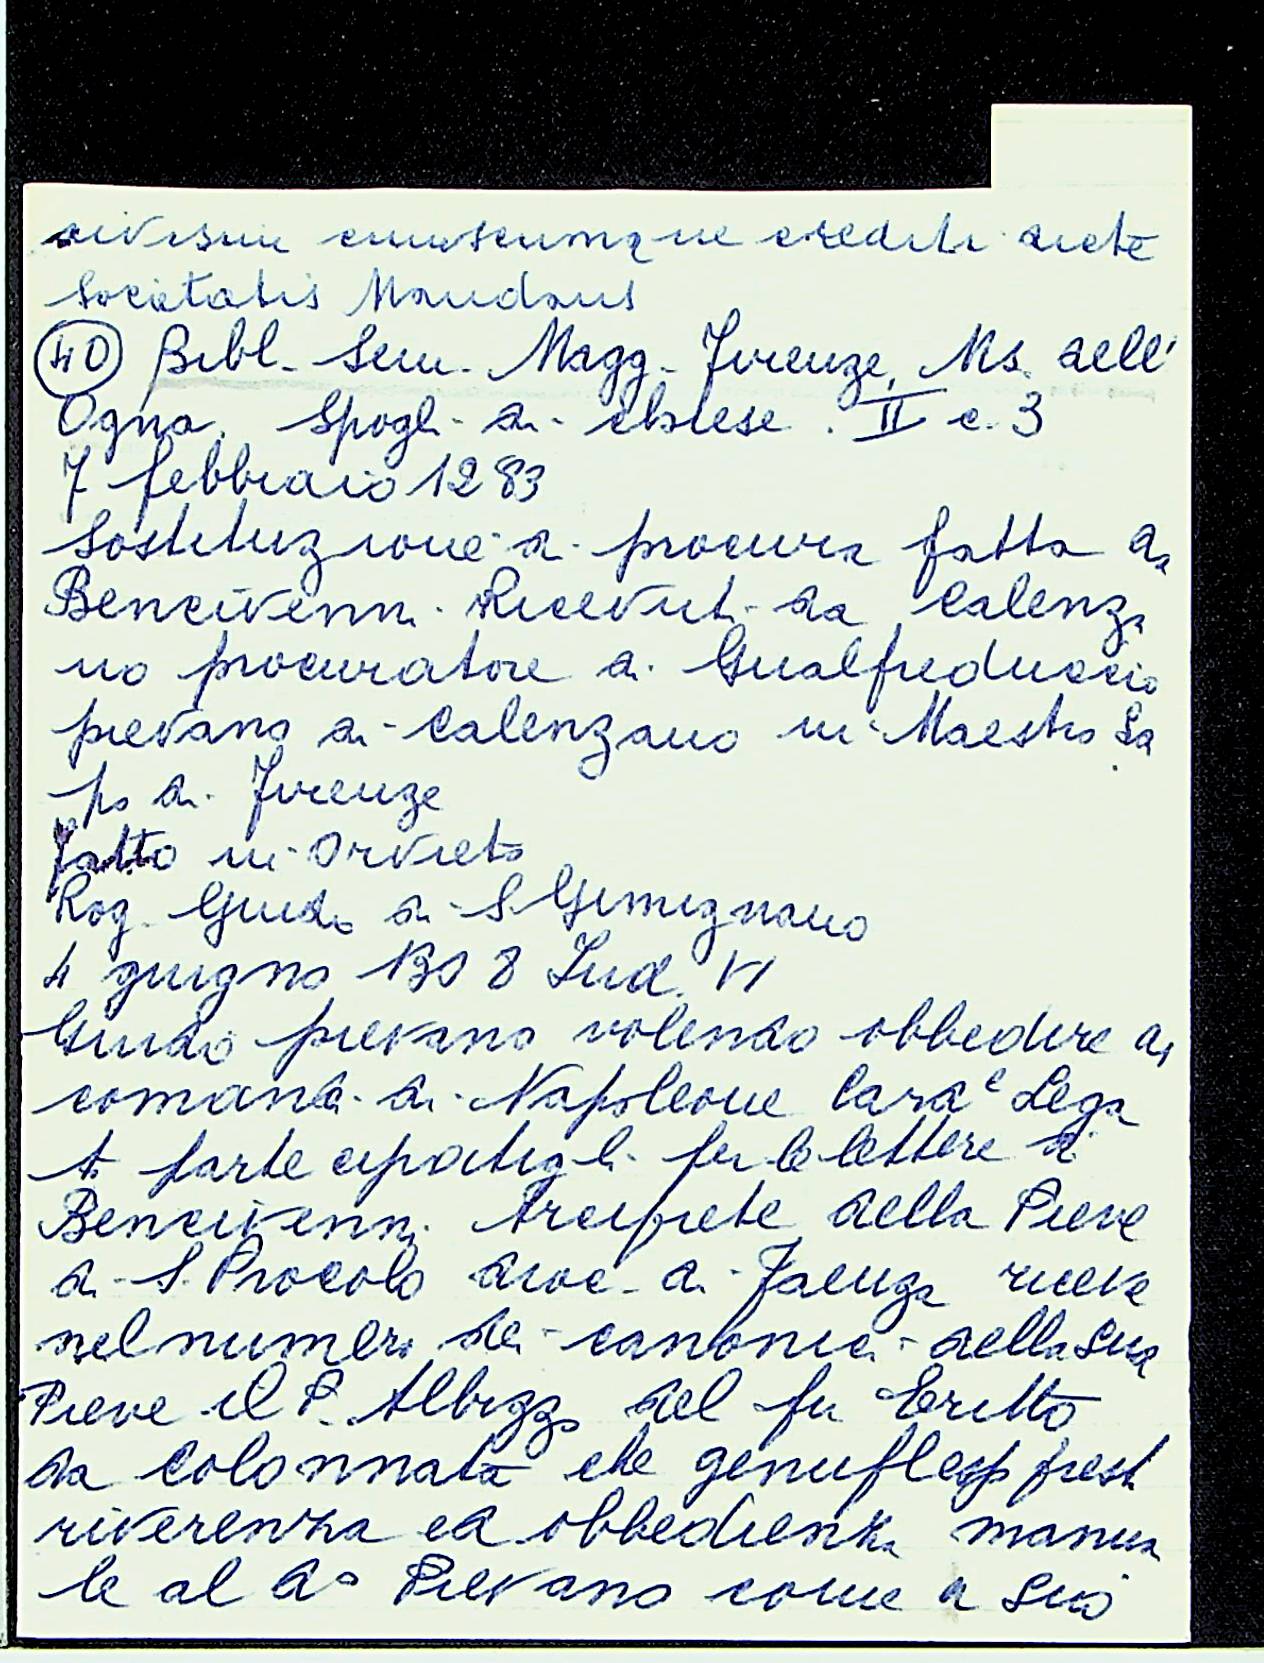 cuiuscumque crediti dicte
Societatis Mandans
40 Bibl. Sem. Magg. Firenze, Ms. dell'
Ogna. Spogli di chiese. II c. 3
7 febbraio 1283
Sostituzione di procura fatta da
Bencivenni Ricevuti da Calenza
no procuratore di Gualfreduccio
pievano di Calenzano in Maestro La
po di Firenze
fatto in Orvieto
Rog. Guido di S. Gimignano
4 giugno 1308 Ind. VI
Guido pievano volendo obbedire ai
comandi di Napoleone Card.e Lega
to fattigli per le lettere di
Bencivenni Arciprete della Pieve
di S. Procolo dioc. di Faenza riceve
nel numero dei canonici della sua
Pieve il P. Albizzo del fu
da Colonnata che genufless prest
riverenza ed obbedienza manua
le al do Pievano come a suo